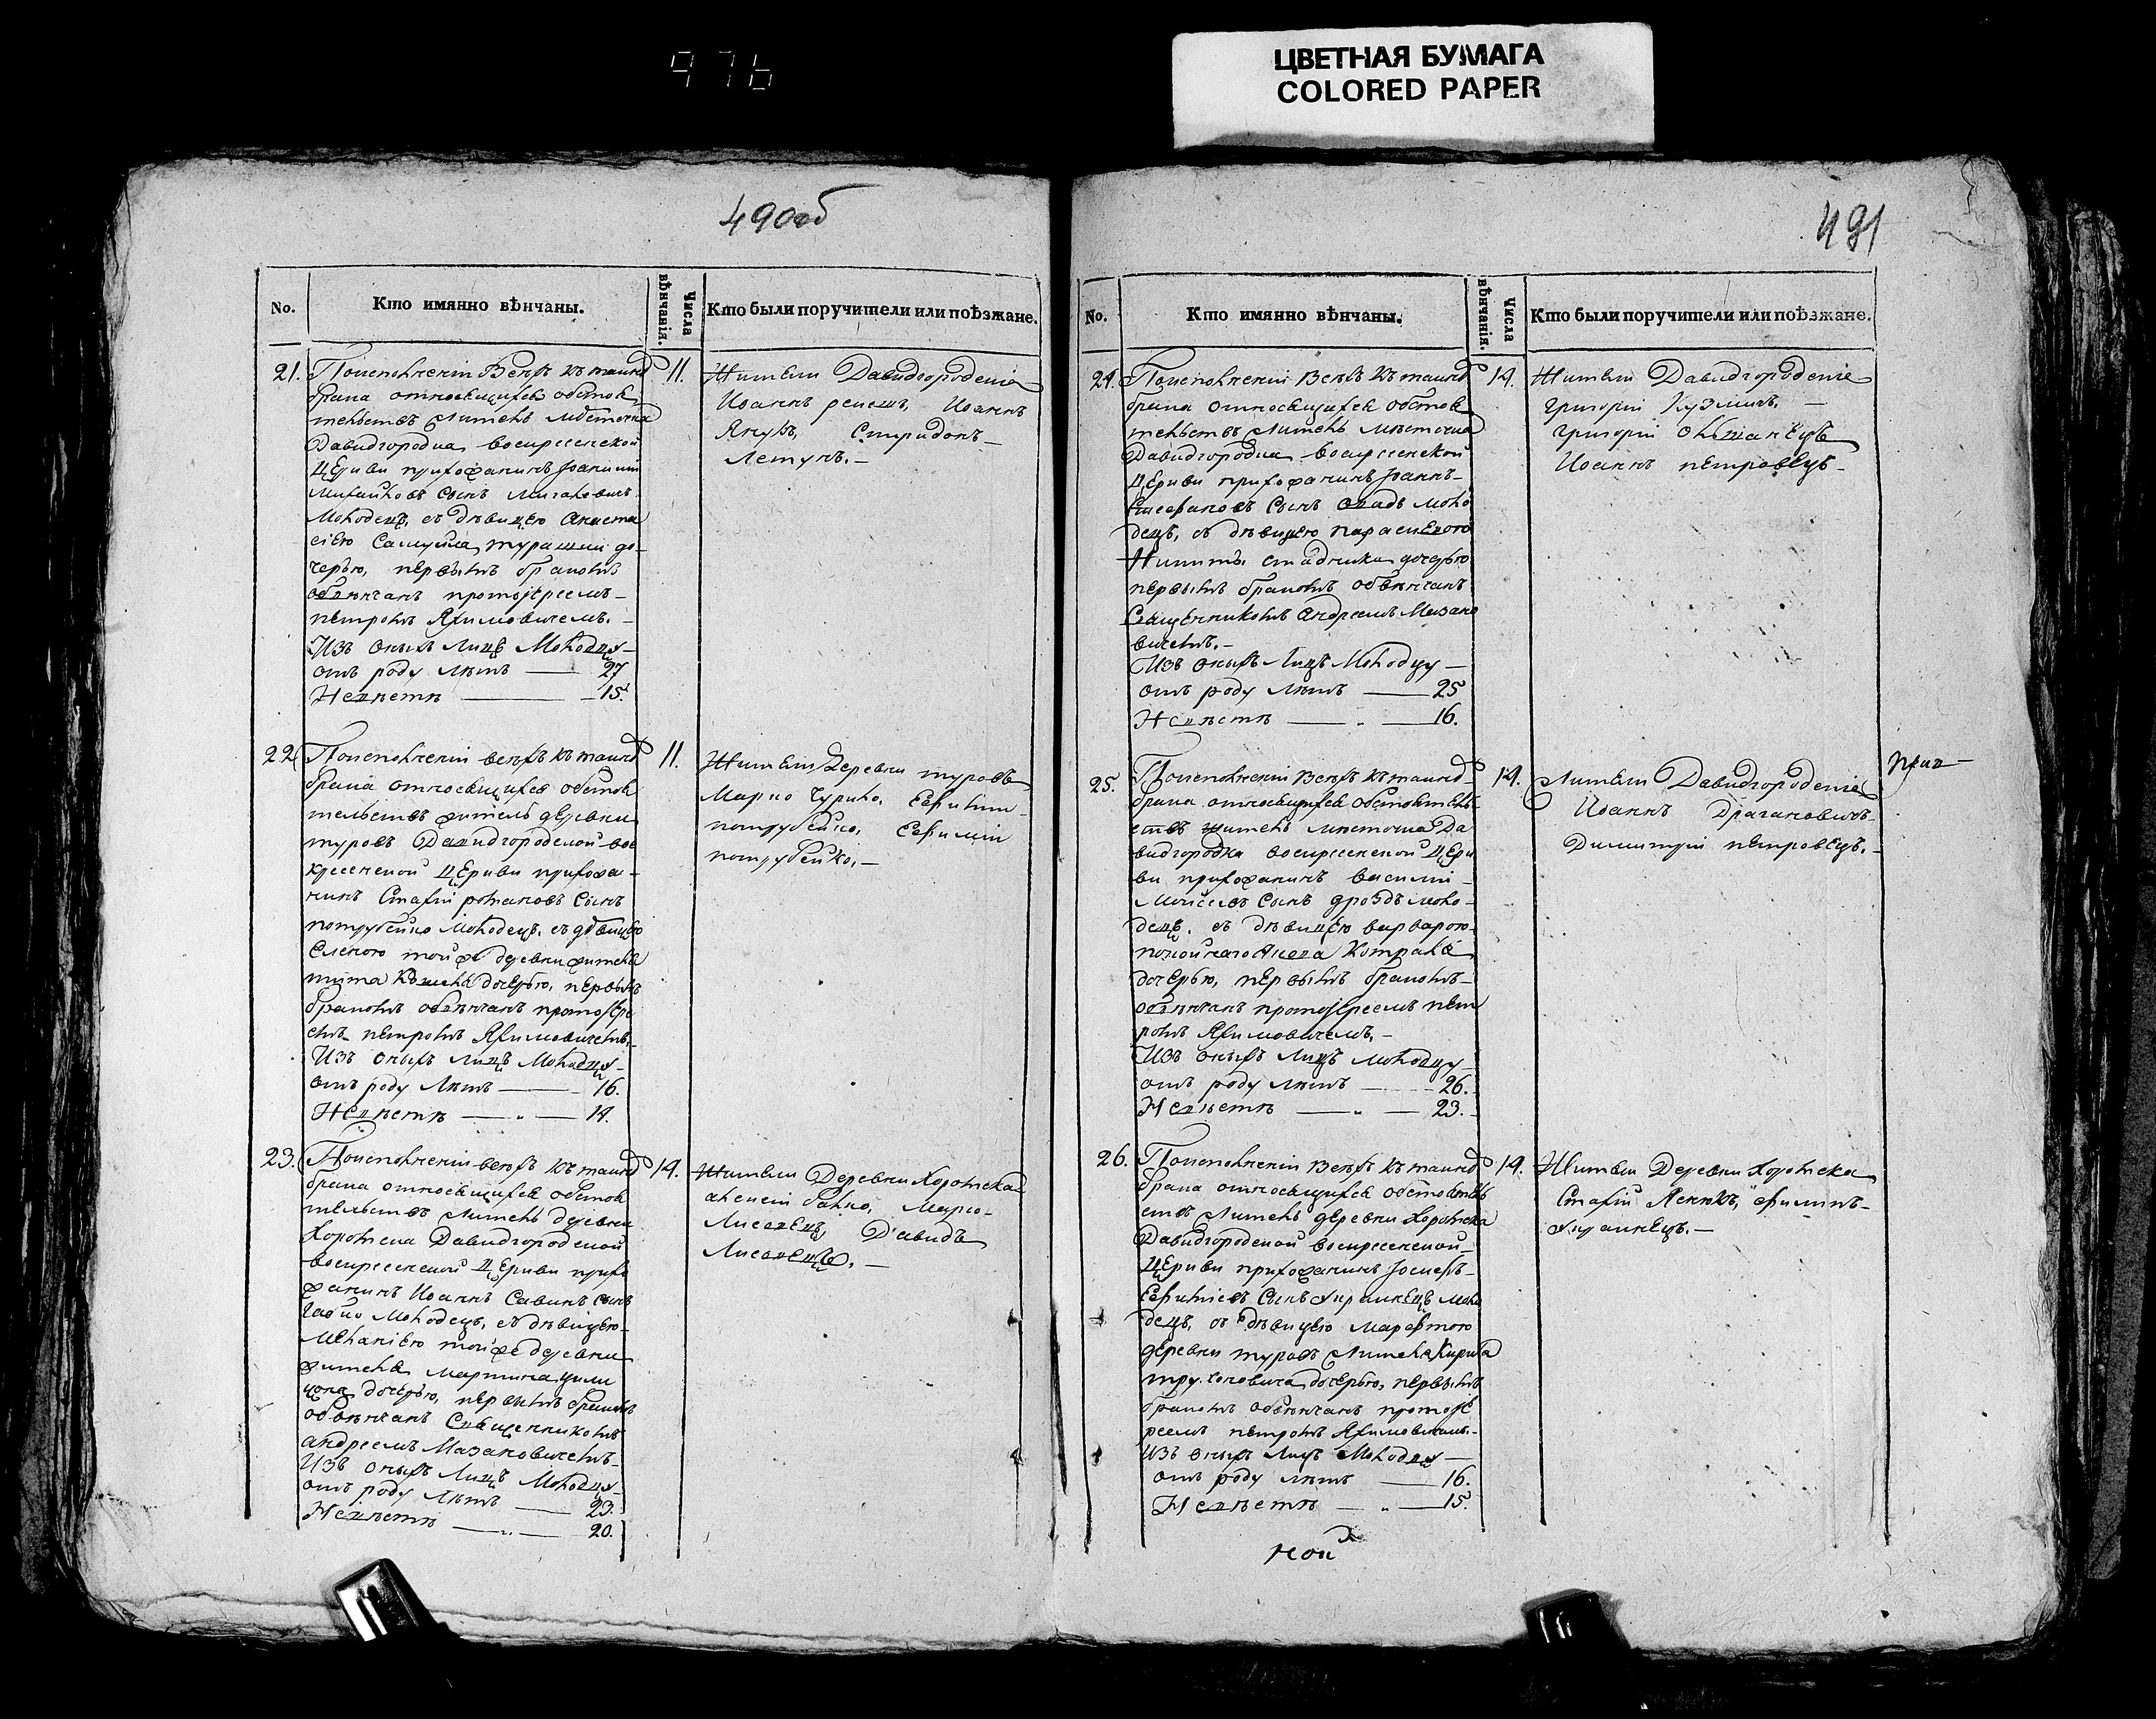 976
ЦВЕТНАЯ БУМАГА
COLORED PAPER
490об
No.
Кто имянно вѣнчаны.
Числа вѣнчанія.
Кто были поручители или поѣзжане.
21. По исполненіи всѣхъ къ таинств 11.
брака относящихся обстоя
тельствъ житель мѣстечка
Давидгородка воскресенской
церкви прихожанинъ Іоанникій
Михайловъ сынъ
молодецъ, съ дѣвицею Анаста
сіею Самуила дo
черью, первымъ бракомъ
обвѣнчанъ протоіереемъ
петромъ Якимовичемъ.
Изъ оныхъ лицъ молодцу
отъ роду лѣтъ — 27
Невѣстѣ — 15.
Жители Давидгородскіе
Иоаннъ Иоаннъ
Спиридонъ
Летунъ. —
22. По исполненіи всѣхъ къ таинств 11.
брака относящихся обстоя
тельствъ житель деревни
туровъ Давидгородской вос
кресенской церкви прихожа
нинъ Стахій романовъ сынъ
потрубейко молодецъ, съ дѣвицею
Еленою тойже деревни жителя
тита дочерью, первымъ
бракомъ обвѣнчанъ протоіере
емъ петромъ Якимовичемъ.
Изъ оныхъ лицъ молодцу
отъ роду лѣтъ — 16.
Невѣстѣ — „ — 14.
Жители Деревни туровъ
Марко Чурило, Евфимій
потрубейко, Ефимій
потрубейко. —
23. По исполненіи всѣхъ къ таинств 14.
брака относящихся обстоя
тельствъ житель деревни
Хоромска Давидгородской
воскресенской церкви прихо
жанинъ Иоаннъ Савинъ сынъ
молодецъ, съ дѣвицею
Меланіею тойже деревни
жителя мартина
дочерью, первымъ бракомъ
обвѣнчанъ Священникомъ
андреемъ Мазановичемъ
Изъ оныхъ лицъ молодцу
отъ роду лѣтъ — 23.
Невѣстѣ — „ — 20.
Жители Деревни Хоромска
алексій Марко
Лисовецъ, Давидъ
Лисовецъ. —
491
No.
Кто имянно вѣнчаны.
Числа вѣнчанія.
Кто были поручители или поѣзжане.
24. По исполненіи всѣхъ къ таинств 14.
брака относящихся обстоя
тельствъ житель мѣстечка
Давидгородка воскресенской
церкви прихожанинъ Іоаннъ
Стефановъ сынъ моло
децъ, съ дѣвицею параскевою
Никиты стадника дочерью
первымъ бракомъ обвѣнчанъ
Священникомъ Андреемъ Мазано
вичемъ. —
Изъ оныхъ лицъ молодцу —
отъ роду лѣтъ — 25
Невѣстѣ — „ — 16.
Жители Давидгородскіе
григорій Кузмичъ, —
григорій
Иоаннъ петровецъ
25. По исполненіи всѣхъ къ таинств 14.
брака относящихся обстоятель
ствъ житель мѣстечка Да
видгородка воскресенской церк
ви прихожанинъ василій
Моисеевъ сынъ дроздъ моло
децъ, съ дѣвицею варварою
покойнаго
дочерью, первымъ бракомъ
обвѣнчанъ протоіереемъ пет
ромъ Якимовичемъ. —
Изъ оныхъ лицъ молодцу
отъ роду лѣтъ — 26.
Невѣстѣ — „ — 23.
Жители Давидгородскіе
Иоаннъ Драгановичъ
Димитрій петровецъ. —
26. По исполненіи всѣхъ къ таинств 14.
брака относящихся обстоятель
ствъ житель деревни Хоромска
Давидгородской воскресенской
церкви прихожанинъ Іосифъ
Евфиміевъ сынъ моло
децъ, съ дѣвицею марфтою
деревни туровъ жителя Кирила
дочерью, первымъ
бракомъ обвѣнчанъ протоіе
реемъ петромъ Якимовичемъ.
Изъ оныхъ лицъ молодцу —
отъ роду лѣтъ — 16.
Невѣстѣ — „ — 15.
Жители Деревни Хоромска
Стахій филипъ
ной